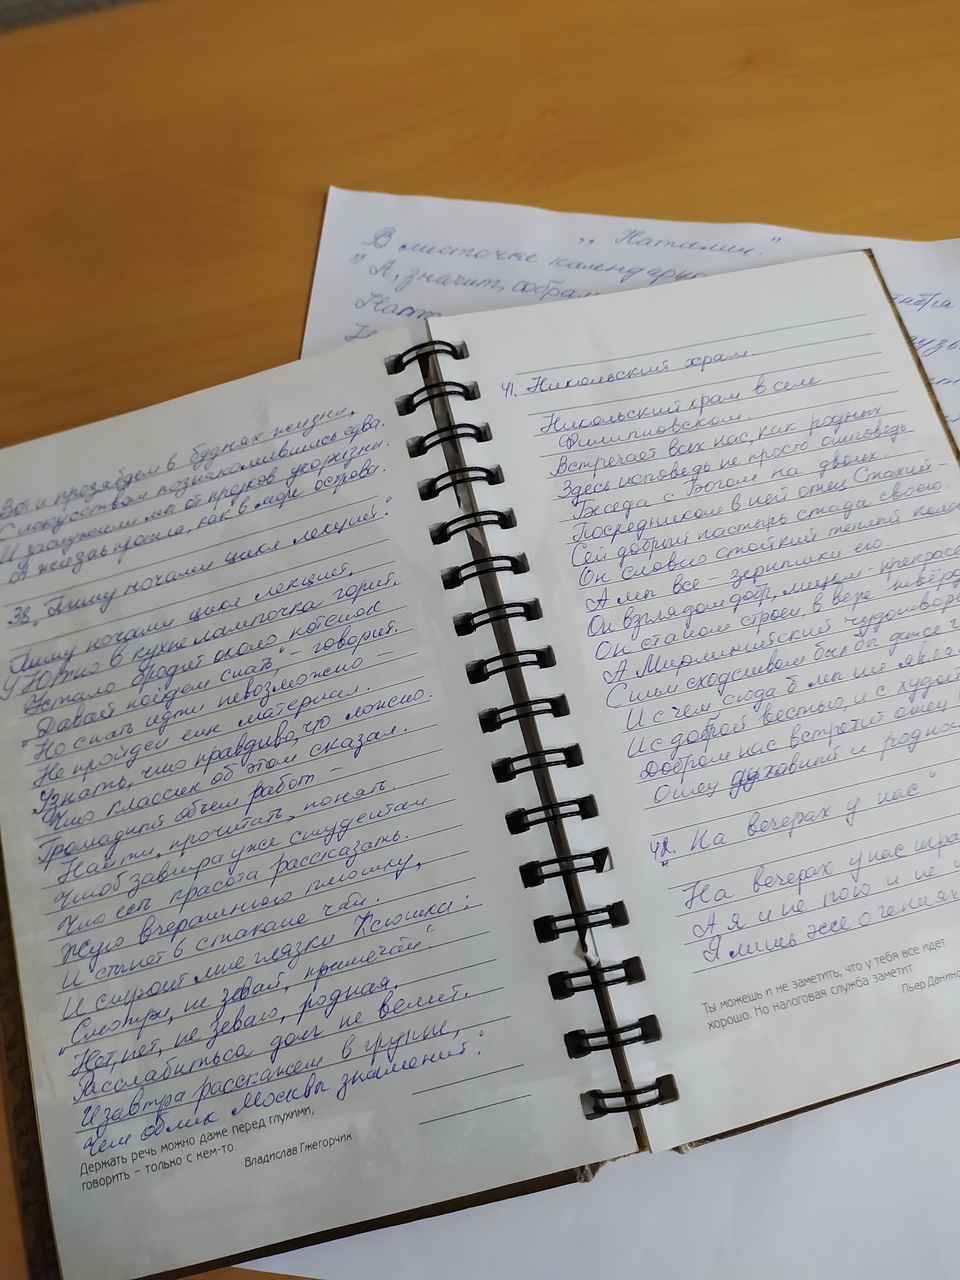 „ Натали "
В листочке календарно
" А, значит, собрал
Вот и прозябаем в буднях жизни,
С искусством познакомившись едва.
И заслужили мы от предков укоризны
А жизнь прошла, как в море острова.
38. Пишу ночами цикл лекций:
Пишу ночами цикл лекций,
Уютно в кухне лампочка горит,
Устало бродит около котёнок
"Давай пойдем спать", – говорит.
Но спать идти невозможно
Не пройден еще материал.
Узнать, что правдиво, что ложно.
Что классик об этом сказал.
Громадный объем работ –
Найти, прочитать, понять.
Чтоб завтра уже студентам
Что есть красота рассказать.
Жую вчерашнюю плюшку,
И стынет в стакане чай.
И строит мне глазки Ксюшка:
"Смотри, не зевай, примечай"
Нет, нет, не зеваю, родная.
Расслабиться долг не велит.
И завтра расскажем в группе,
Чем облик Москвы знаменит.
Держать речь можно даже перед глухими,
говорить – только с кем-то.
Владислав Гжегорчик
41. Никольский храм.
Никольский храм в селе
Филипповском.
Встречает всех нас, как родных
Здесь исповедь не просто исповедь
Беседа с Богом на двоих.
Посредником в ней отец Стахий –
Сей добрый пастырь стада своего.
Он словно стойкий теплый
А мы все – зернышки его.
Он взглядом добр, лицом –
Он станом строен, в вере
А Мирликийский
С ним сходством был бы даже
И с чем сюда б мы ни
И с доброй вестью, и с худой
Добром нас встретит отец
Отец духовный и
42. " На вечерах у нас "
На вечерах у нас
А я и не пою и не
Я лишь же о гениях
Ты можешь и не заметить, что у тебя все идет
хорошо. Но налоговая служба заметит.
Пьер Данино